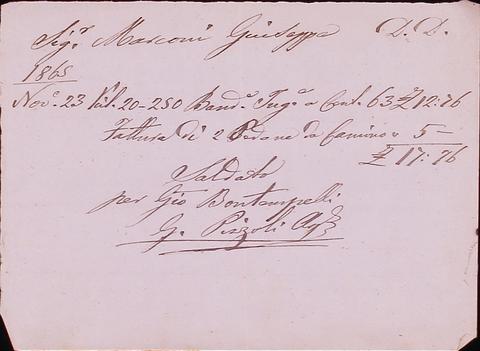 Sig.r Marconi Giuseppe D. D.
1865
Nov.e 23 20-250 Band.e a Cent. 63 £ 12:76
Fattura di 2 Pedane da Camino " 5-
£ 17:76
Saldato
per Gio Bontempelli
G. Pizzoli Ag.e